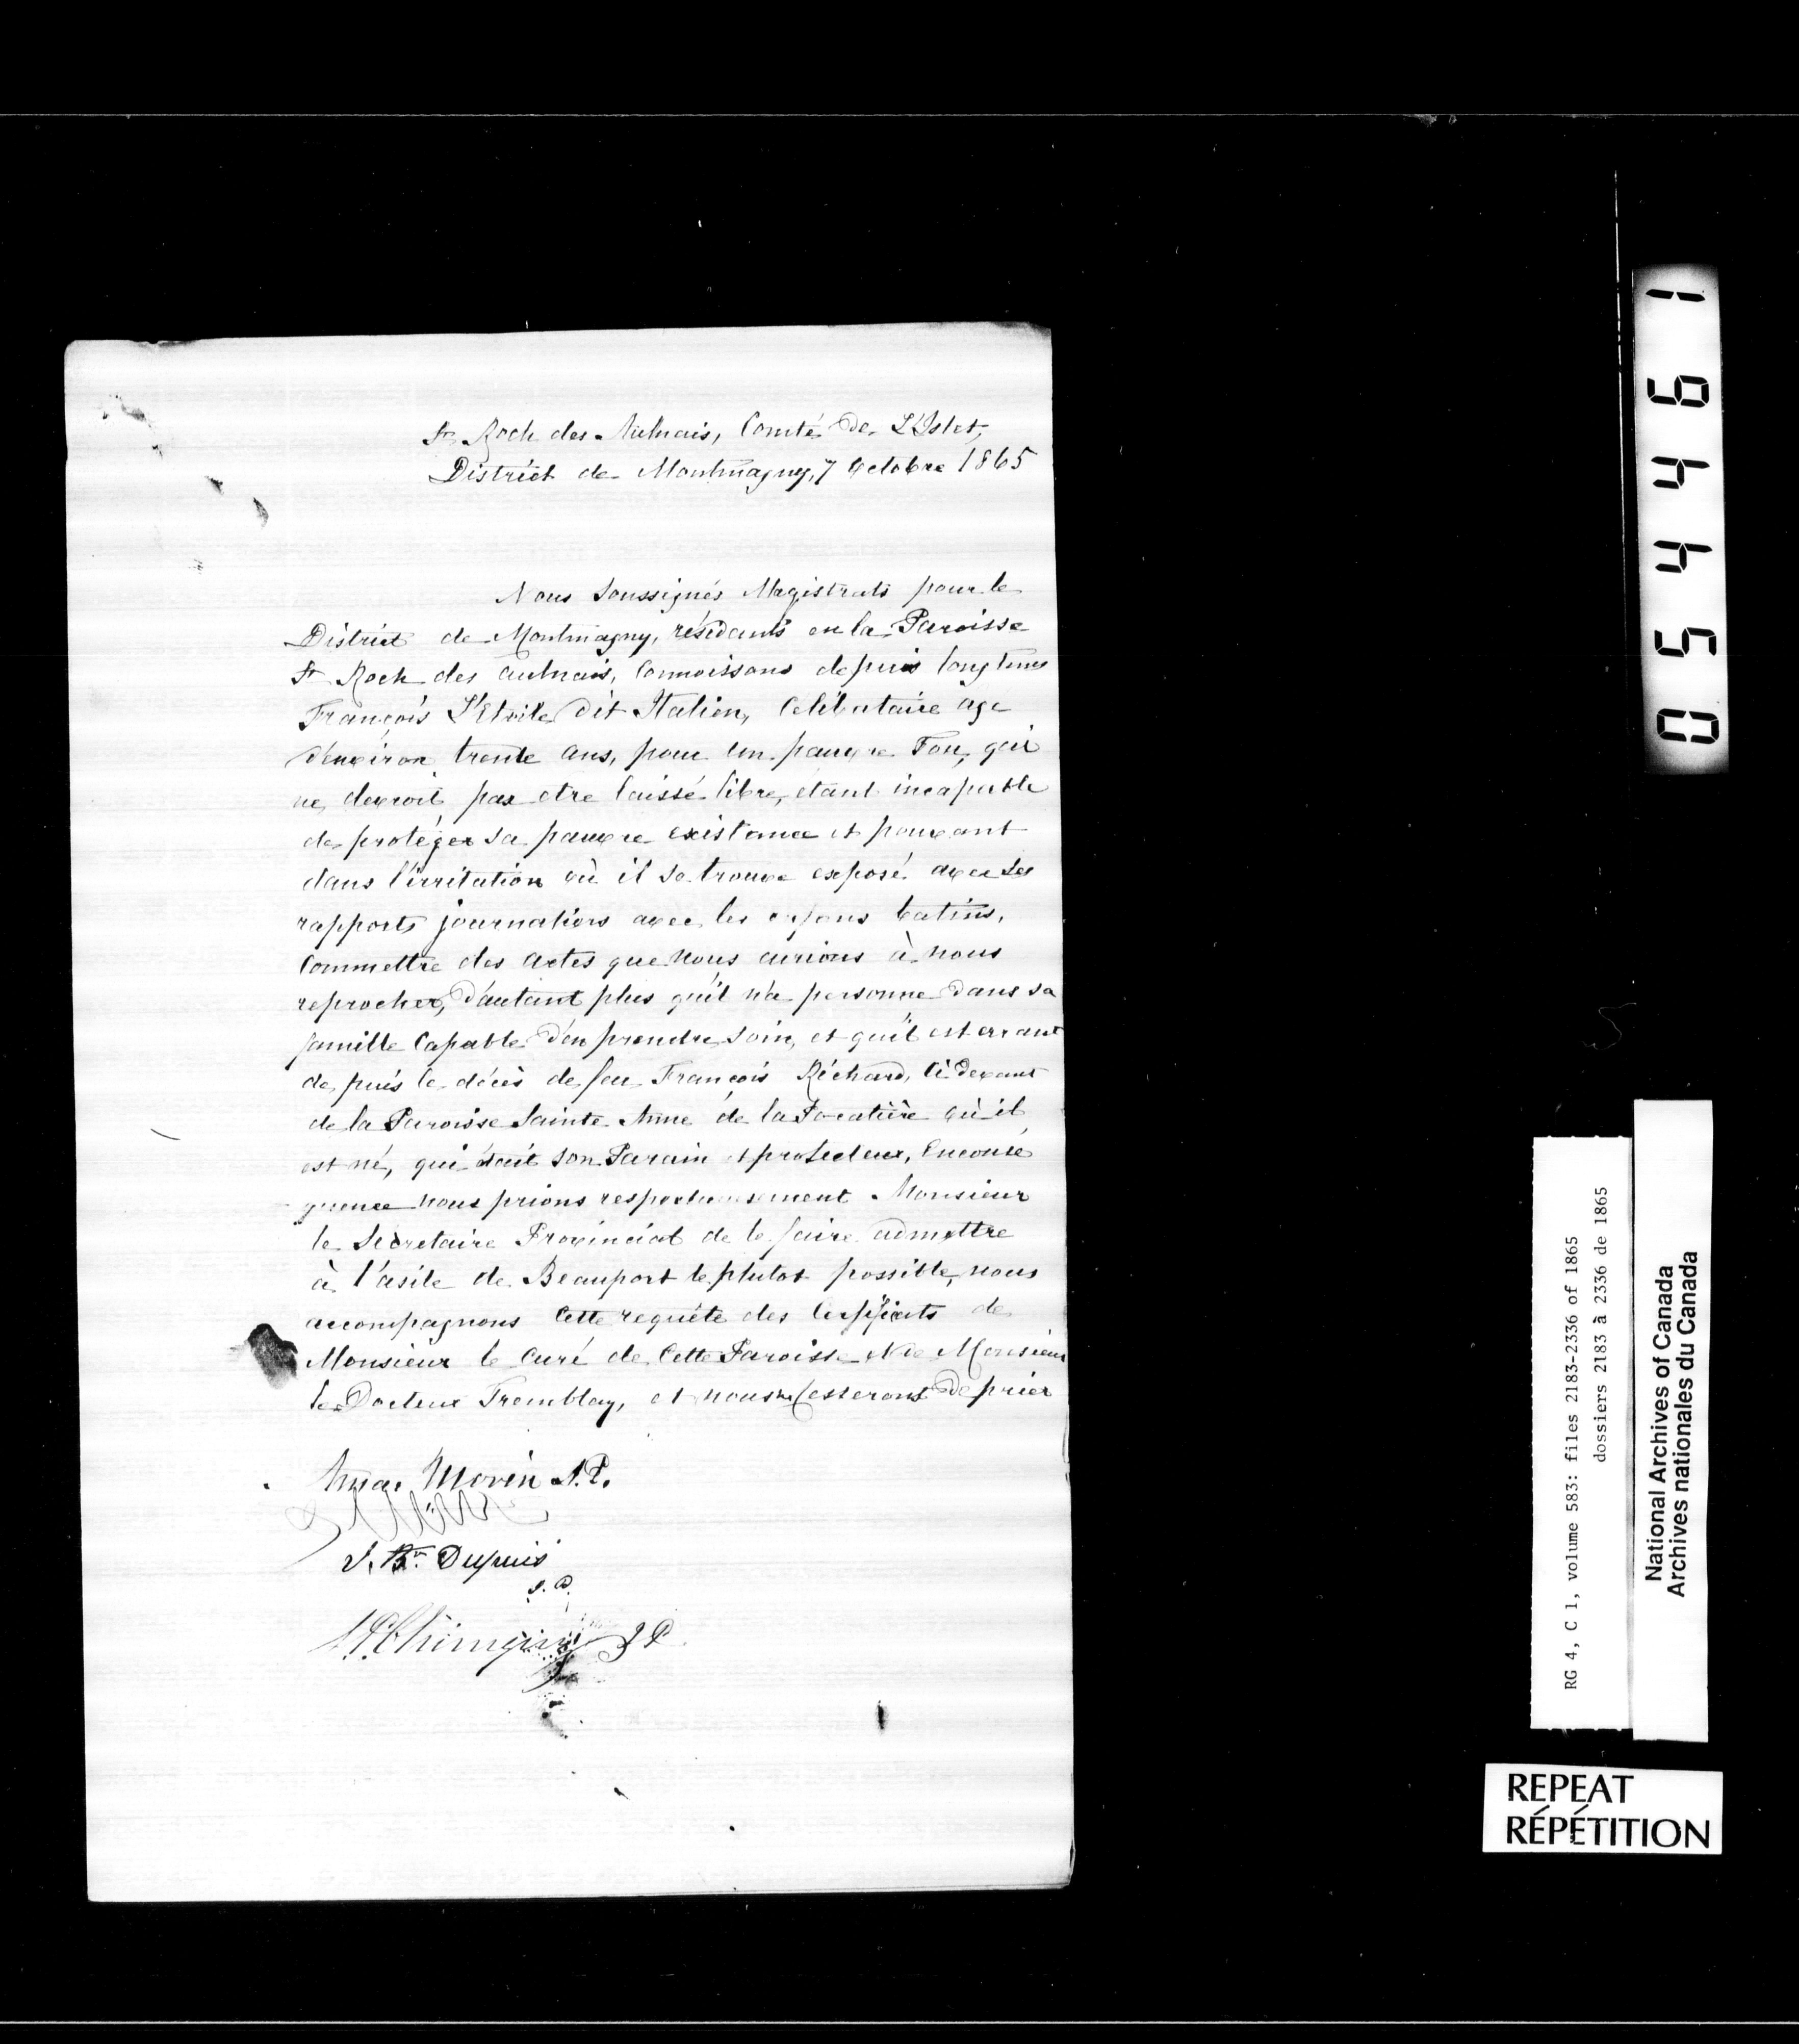 St Roch des Aulnais, Comté de L'Islet,
District de Montmagny, 7 Octobre 1865
Nous Soussignés Magistrats pour le
District de Montmagny, résidants en la Paroisse
St Roch des Aulnais, Connoissons depuis longtems
François L'Etoile dit Italien, Celibataire age
d'environ trente ans, pour un pauvre Fou, qui
ne devroit pas etre laissé libre, étant incapable
de protéger sa pauvre existance et pouvant
dans l'irritation où il se trouve exposé avec ses
rapports journaliers avec les enfans
Commettre des actes que nous aurions à nous
reprocher, d'autant plus qu'il n'a personne dans sa
famille Capable d'en prendre soin, et qu'il est errant
depuis le décès de feu François Richard, ci devant
de la Paroisse Sainte Anne de la Pocatière où il
est né, qui était son Parain et protecteur, Enconsé
quence nous prions respectueusement Monsieur
le Secretaire Provincial de le faire admettre
à l'asile de Beauport le plutot possible, nous
accompagnons Cette requête des Certificats de
Monsieur le Curé de Cette Paroisse & de Monsieur
le Docteur Tremblay, et nous ne Cesserons de prier
Morin J.P.
J. Bte Dupuis
J.P.
JP
05446 1
RG 4, C 1, volume 583: files 2183-2336 of 1865
dossiers 2183 à 2336 de 1865
National Archives of Canada
Archives nationales du Canada
REPEAT
RÉPÉTITION